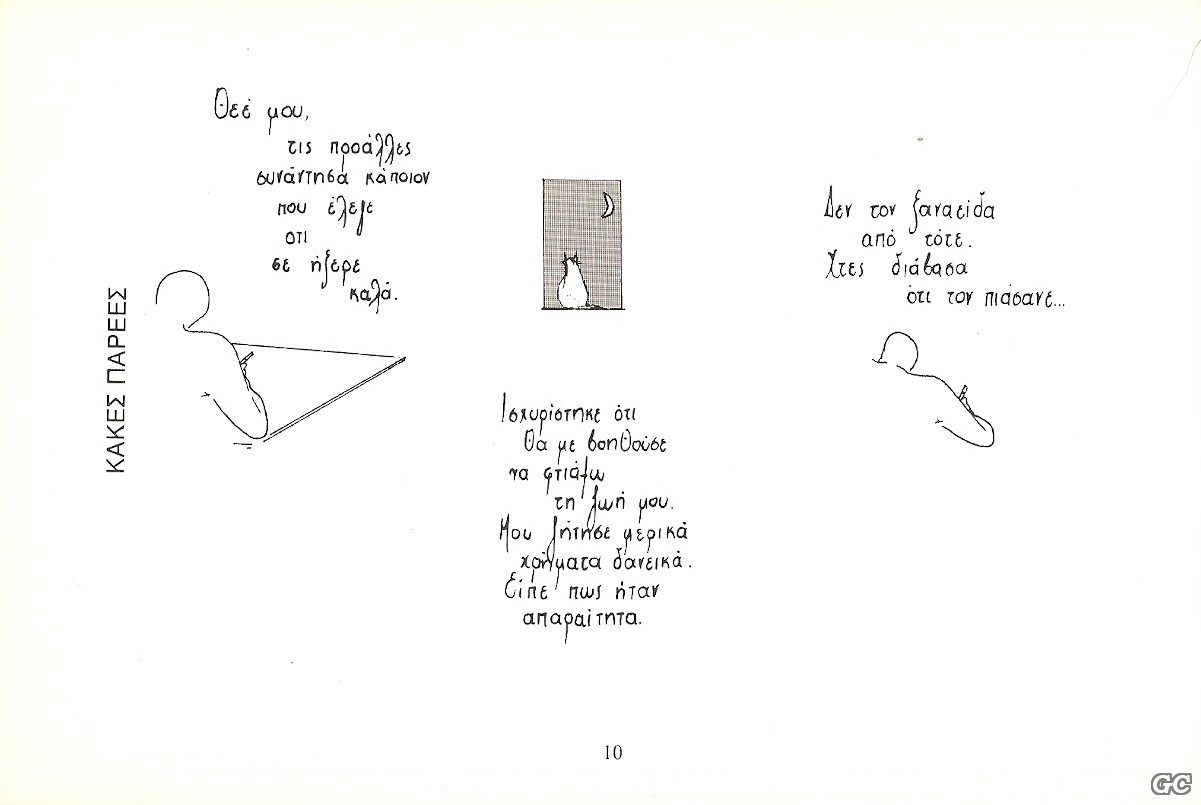 ΚΑΚΕΣ ΠΑΡΕΕΣ
Θεέ μου,
τις προάλλες
συνάντησα κάποιον
που έλεγε
οτι
σε ήξερε
καλά.
Ισχυρίστηκε ότι
θα με βοηθούσε
να φτιάξω
τη ζωή μου.
Μου ζήτησε μερικά
χρήματα δανεικά.
Είπε πως ήταν
απαραίτητα.
Δεν τον ξαναείδα
από τότε.
Χτες διάβασα
ότι τον πιάσανε...
10
GC